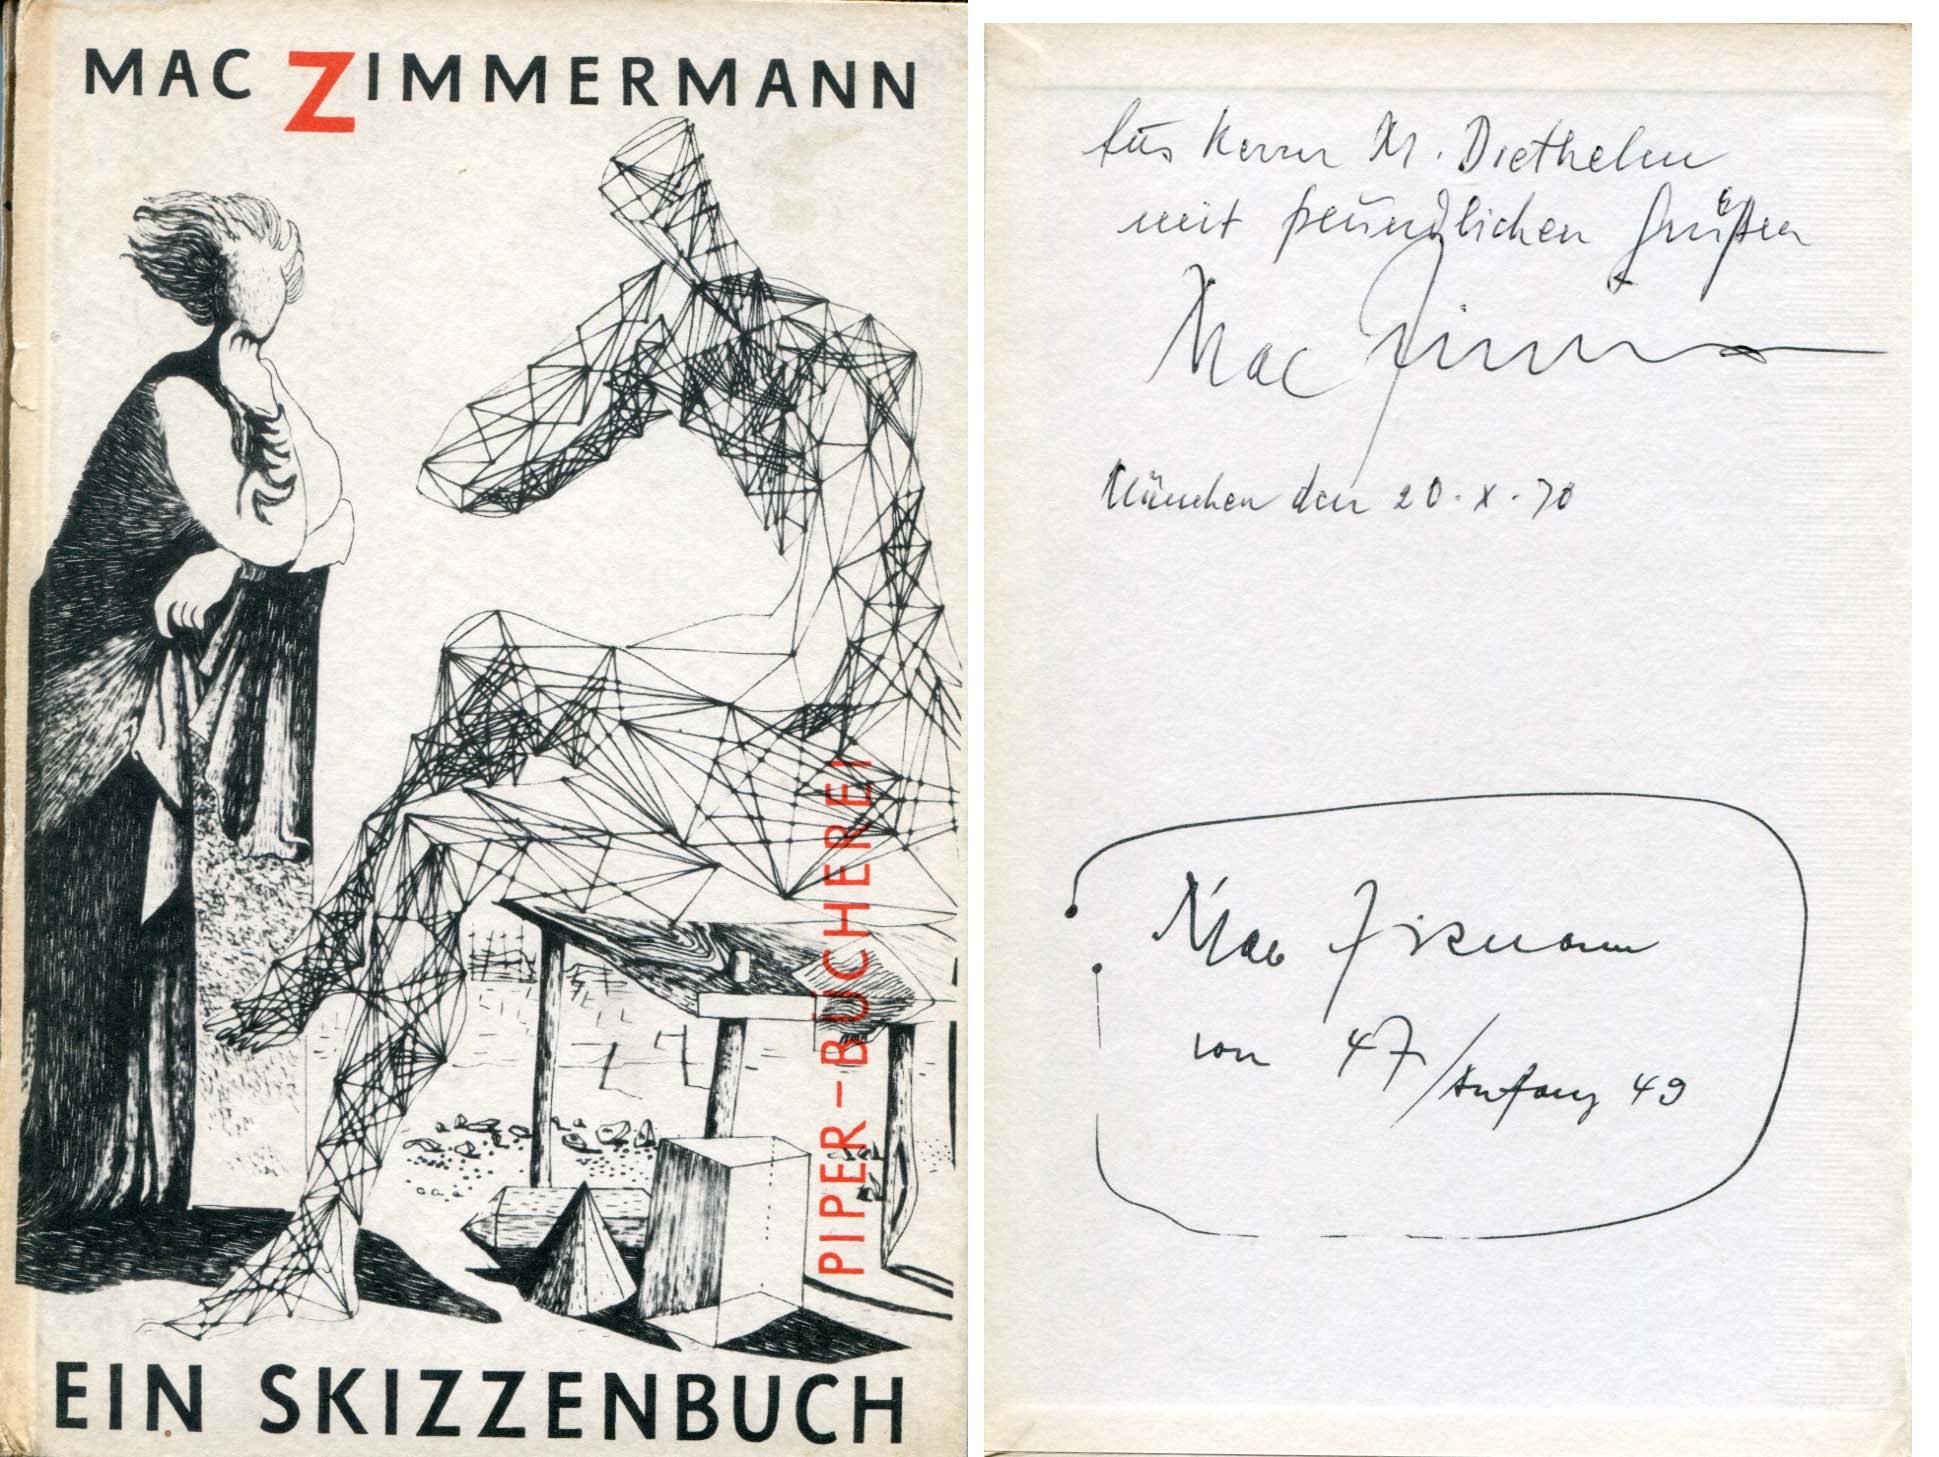 MAC ZIMMERMANN
PIPER-BÜCHEREI
EIN SKIZZENBUCH
Herrn M. Diethelm
mit freundlichen Grüßen
Mac Zimmermann
München den 20.X.70
Mac Zimmermann
von 47/Anfang 49